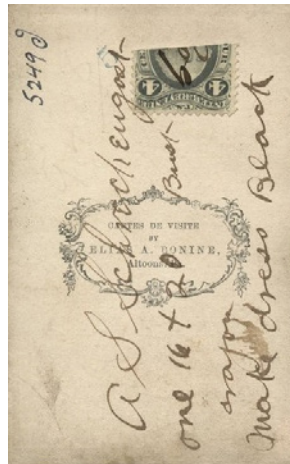 5249 d
4
4
CARTES DE VISITE
BY
ELIAS A. BONINE,
Altoona
A S Schockengost
one 16 x 20 Bust
make dress Black